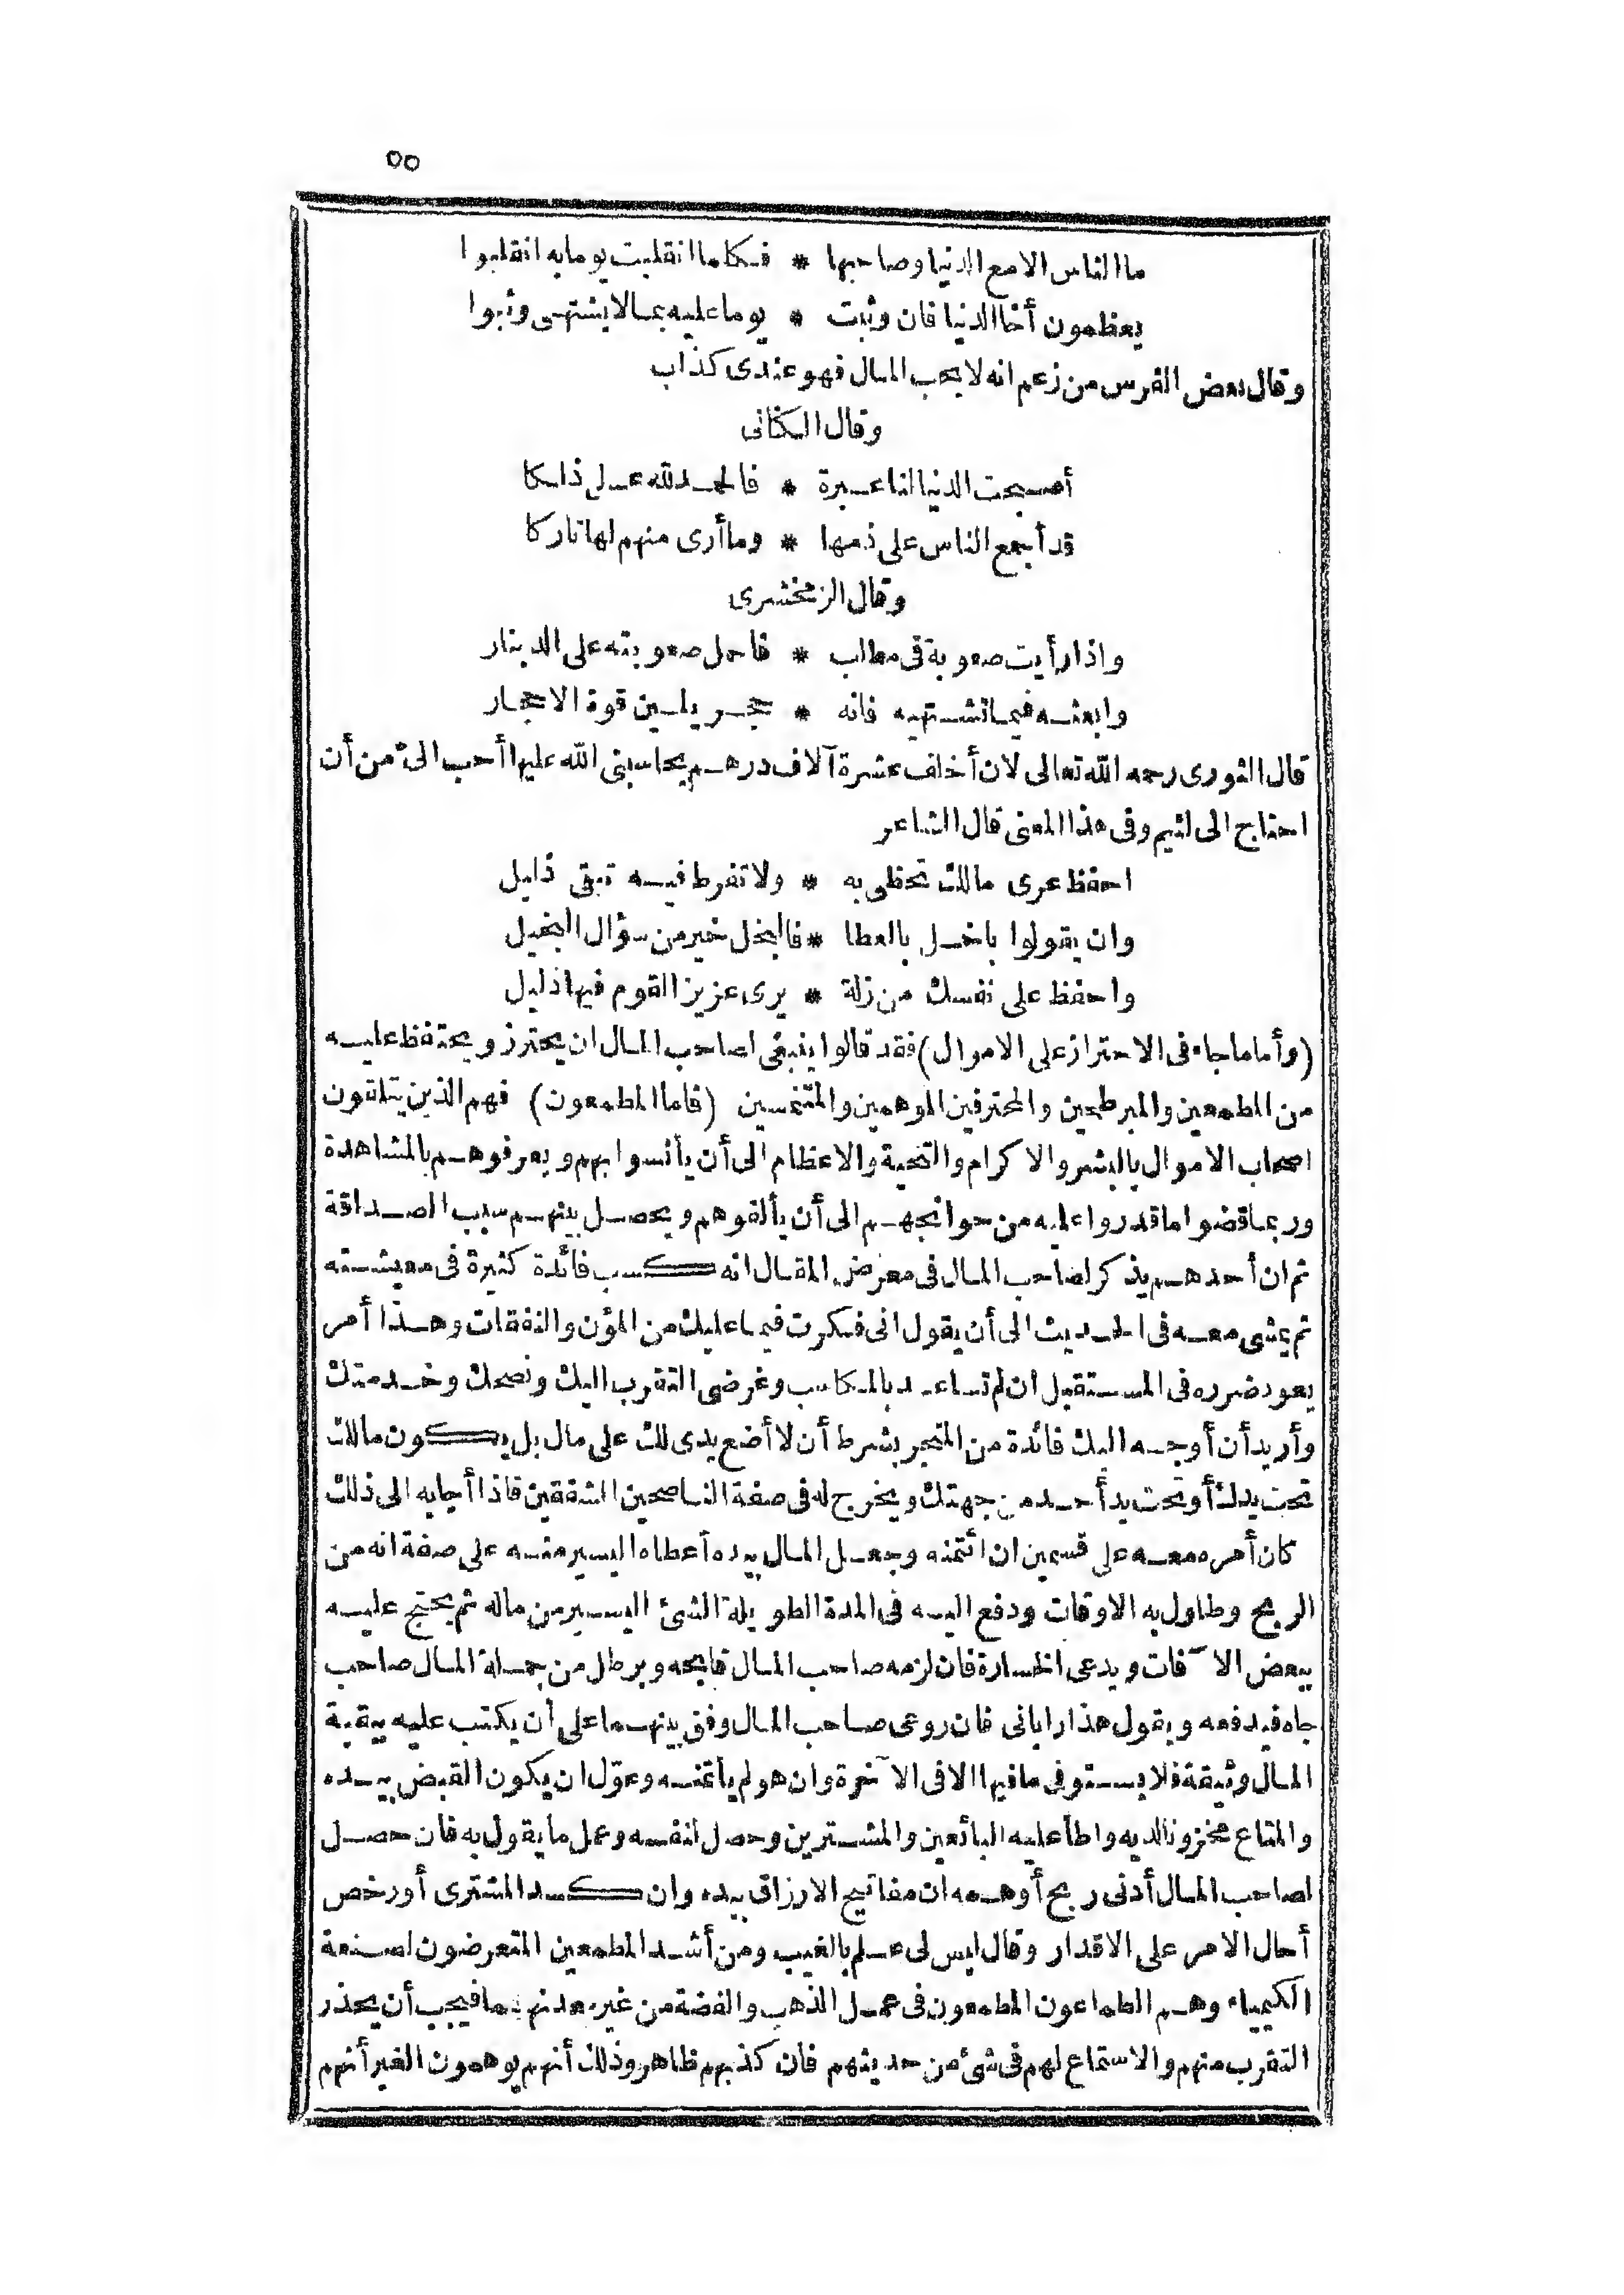 ٥٥
ما الناس الا مع الدنيا وصاحبها * فكلما انقلبت يوما به انقلبوا
يعظمون أخا الدنيا فان وثبت * يوما عليه بما لا يشتهى وثبوا
وقال بعض الفرس من زعم انه لا يحب المال فهو عندى كذاب
وقال الكنانى
أصبحت الدنيا لنا عبرة * فالحمد لله على ذلكا
قد أجمع الناس على ذمها * وما أرى منهم لها تاركا
وقال الزمخشرى
واذا رأيت صعوبة فى مطلب * فاحمل صعوبته على الدينار
وابعثه فيما تشتهيه فانه * حجر يلين قوة الاحجار
قال الثورى رحمه الله تعالى لان أخلف عشرة آلاف درهم يحاسبنى الله عليها أحب الىّ من أن
احتاج الى لئيم وفى هذا المعنى قال الشاعر
احفظ عرى مالك تحظى به * ولا تفرط فيه تبقى ذليل
وان يقولوا باخل بالعطا * فالبخل خير من سؤال البخيل
واحفظ على نفسك من زلة * يرى عزيز القوم فيها ذليل
(وأما ما جاء فى الاحتراز على الاموال) فقد قالوا ينبغى لصاحب المال ان يحترز ويحتفظ عليه
من المطمعين والمبرطحين والمحترفين الموهمين والمتنمسين (فاما المطمعون) فهم الذين يتلقون
اصحاب الاموال بالبشر والاكرام والتحية والاعظام الى أن يأنسوا بهم ويعرفوهم بالمشاهدة
وربما قضوا ما قدروا عليه من حوائجهم الى أن يألفوهم ويحصل بينهم سبب الصداقة
ثم ان أحدهم يذكر لصاحب المال فى معرض المقال انه كسب فائدة كثيرة فى معيشته
ثم يمشى معه فى الحديث الى أن يقول انى فكرت فيما عليك من المؤن والنفقات وهذا أمر
يعود ضرره فى المستقبل ان لم تساعد بالمكاسب وغرضى التقرب اليك ونصحك وخدمتك
وأريد أن أوجه اليك فائدة من المتجر بشرط أن لا أضع يدى لك على مال بل يكون مالك
تحت يدك أو تحت يد أحد من جهتك ويخرج له فى صفة الناصحين المشفقين فاذا أجابه الى ذلك
كان أمره معه على قسمين ان ائتمنه وجعل المال بيده أعطاه اليسير منه على صفة انه من
الربح وطاول به الاوقات ودفع اليه فى المدة الطويلة الشئ اليسير من ماله ثم يحتج عليه
ببعض الآفات ويدعى الخسارة فان لزمه صاحب المال قابحه وبرطل من جملة المال صاحب
جاه فيدفعه ويقول هذا رابانى فان روعى صاحب المال وفق بينهما على أن يكتب عليه ببقية
المال وثيقة فلا يستوفى ما فيها الا فى الآخرة وان هو لم يأتمنه وعوّل ان يكون القبض بيده
والمتاع مخزونا لديه واطأ عليه البائعين والمشترين وحصل لنفسه وعمل ما يقول به فان حصل
لصاحب المال أدنى ربح أوهمه ان مفاتيح الارزاق بيده وان كسد المشترى أو رخص
أحال الامر على الاقدار وقال ليس لى علم بالغيب ومن أشد المطمعين المتعرضون لصنعة
الكيمياء وهم الطماعون المطمعون فى عمل الذهب والفضة من غير معدنهما فيجب أن يحذر
التقرب منهم والاستماع لهم فى شئ من حديثهم فان كذبهم ظاهر وذلك أنهم يوهمون الغير أنهم